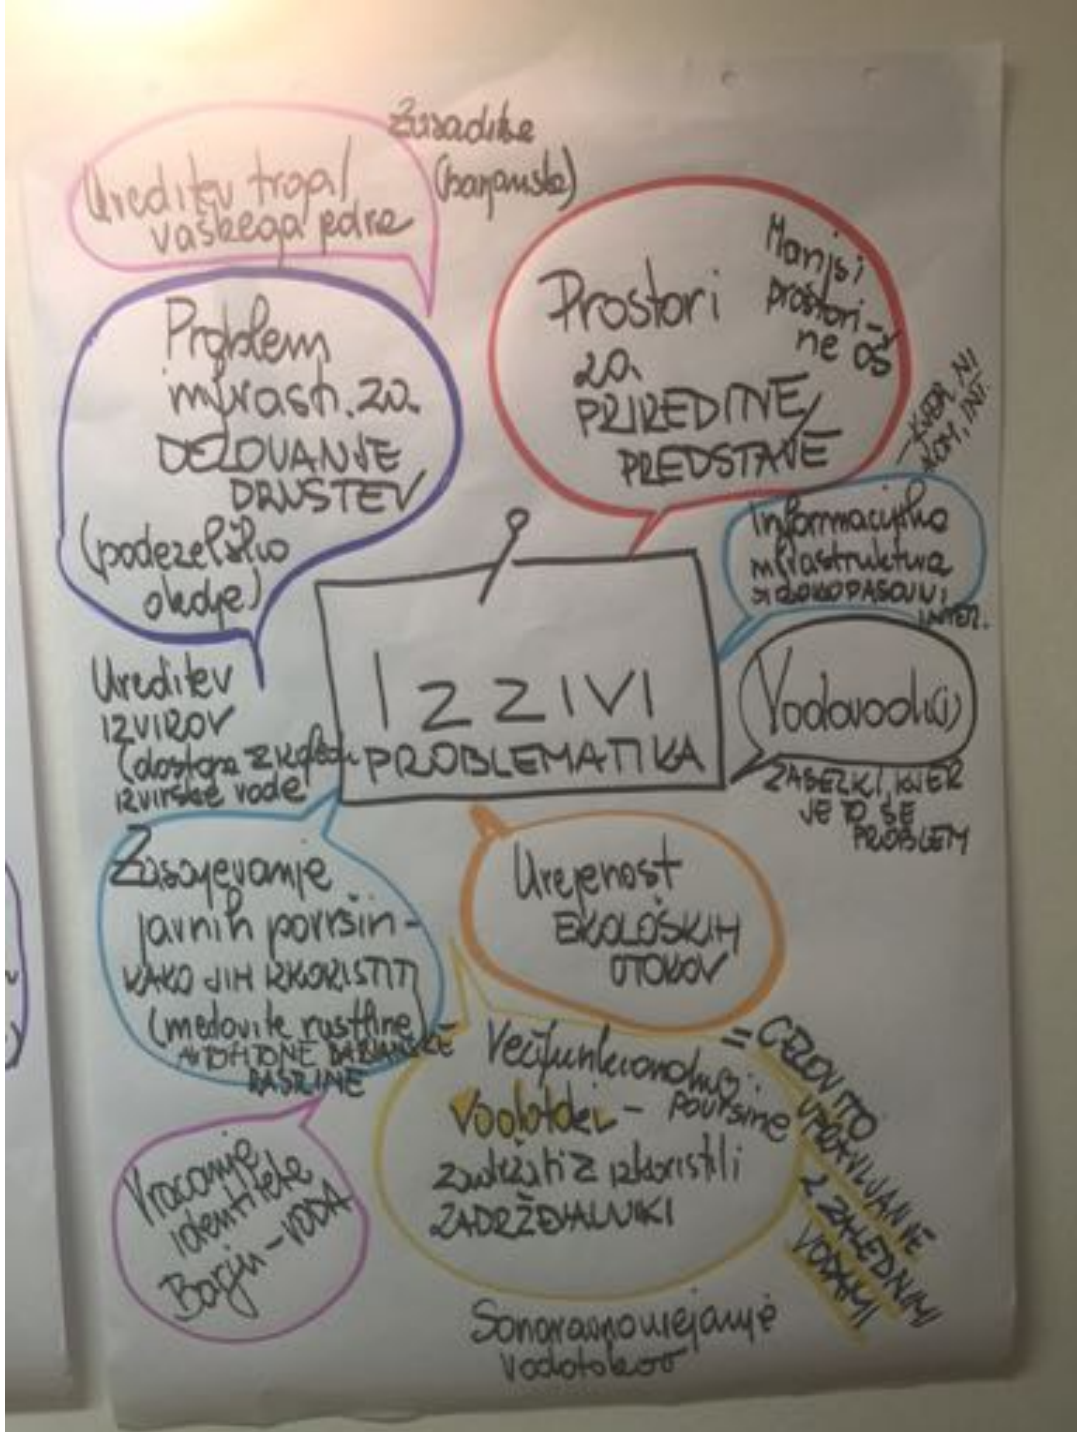 Ureditev trga/
vaškega jedra
Zasaditve
(barjanske)
Problem
infrastr. za
DELOVANJE
DRUŠTEV
(podeželsko
okolje)
Prostori
za
PRIREDITVE/
PREDSTAVE
Manjši
prostori-
ne OŠ
- KJER NI
KOM, INT.
Informacijska
infrastruktura
ŠIROKOPASOVNI
INTER.
Vodovod(i)
ZASELKI, KJER
JE TO ŠE
PROBLEM
IZZIVI
PROBLEMATIKA
Ureditev
IZVIROV
(dostopa
izvirske vode
Zasajevanje
javnih površin -
KAKO JIH IZKORISTITI
(medovite rastline)
AVTOHTONE BARJANSKE
RASTLINE
Urejenost
EKOLOŠKIH
OTOKOV
Večfunkcionalnost
Vodotoki - površine
zadržati z izkoristili
ZADRŽEVALNIKI
= CELOVITO
UPRAVLJANJE
Z ZALEDNIMI
VODAMI
Vračanje
identitete
Barju - VODA
Sonaravno urejanje
vodotokov